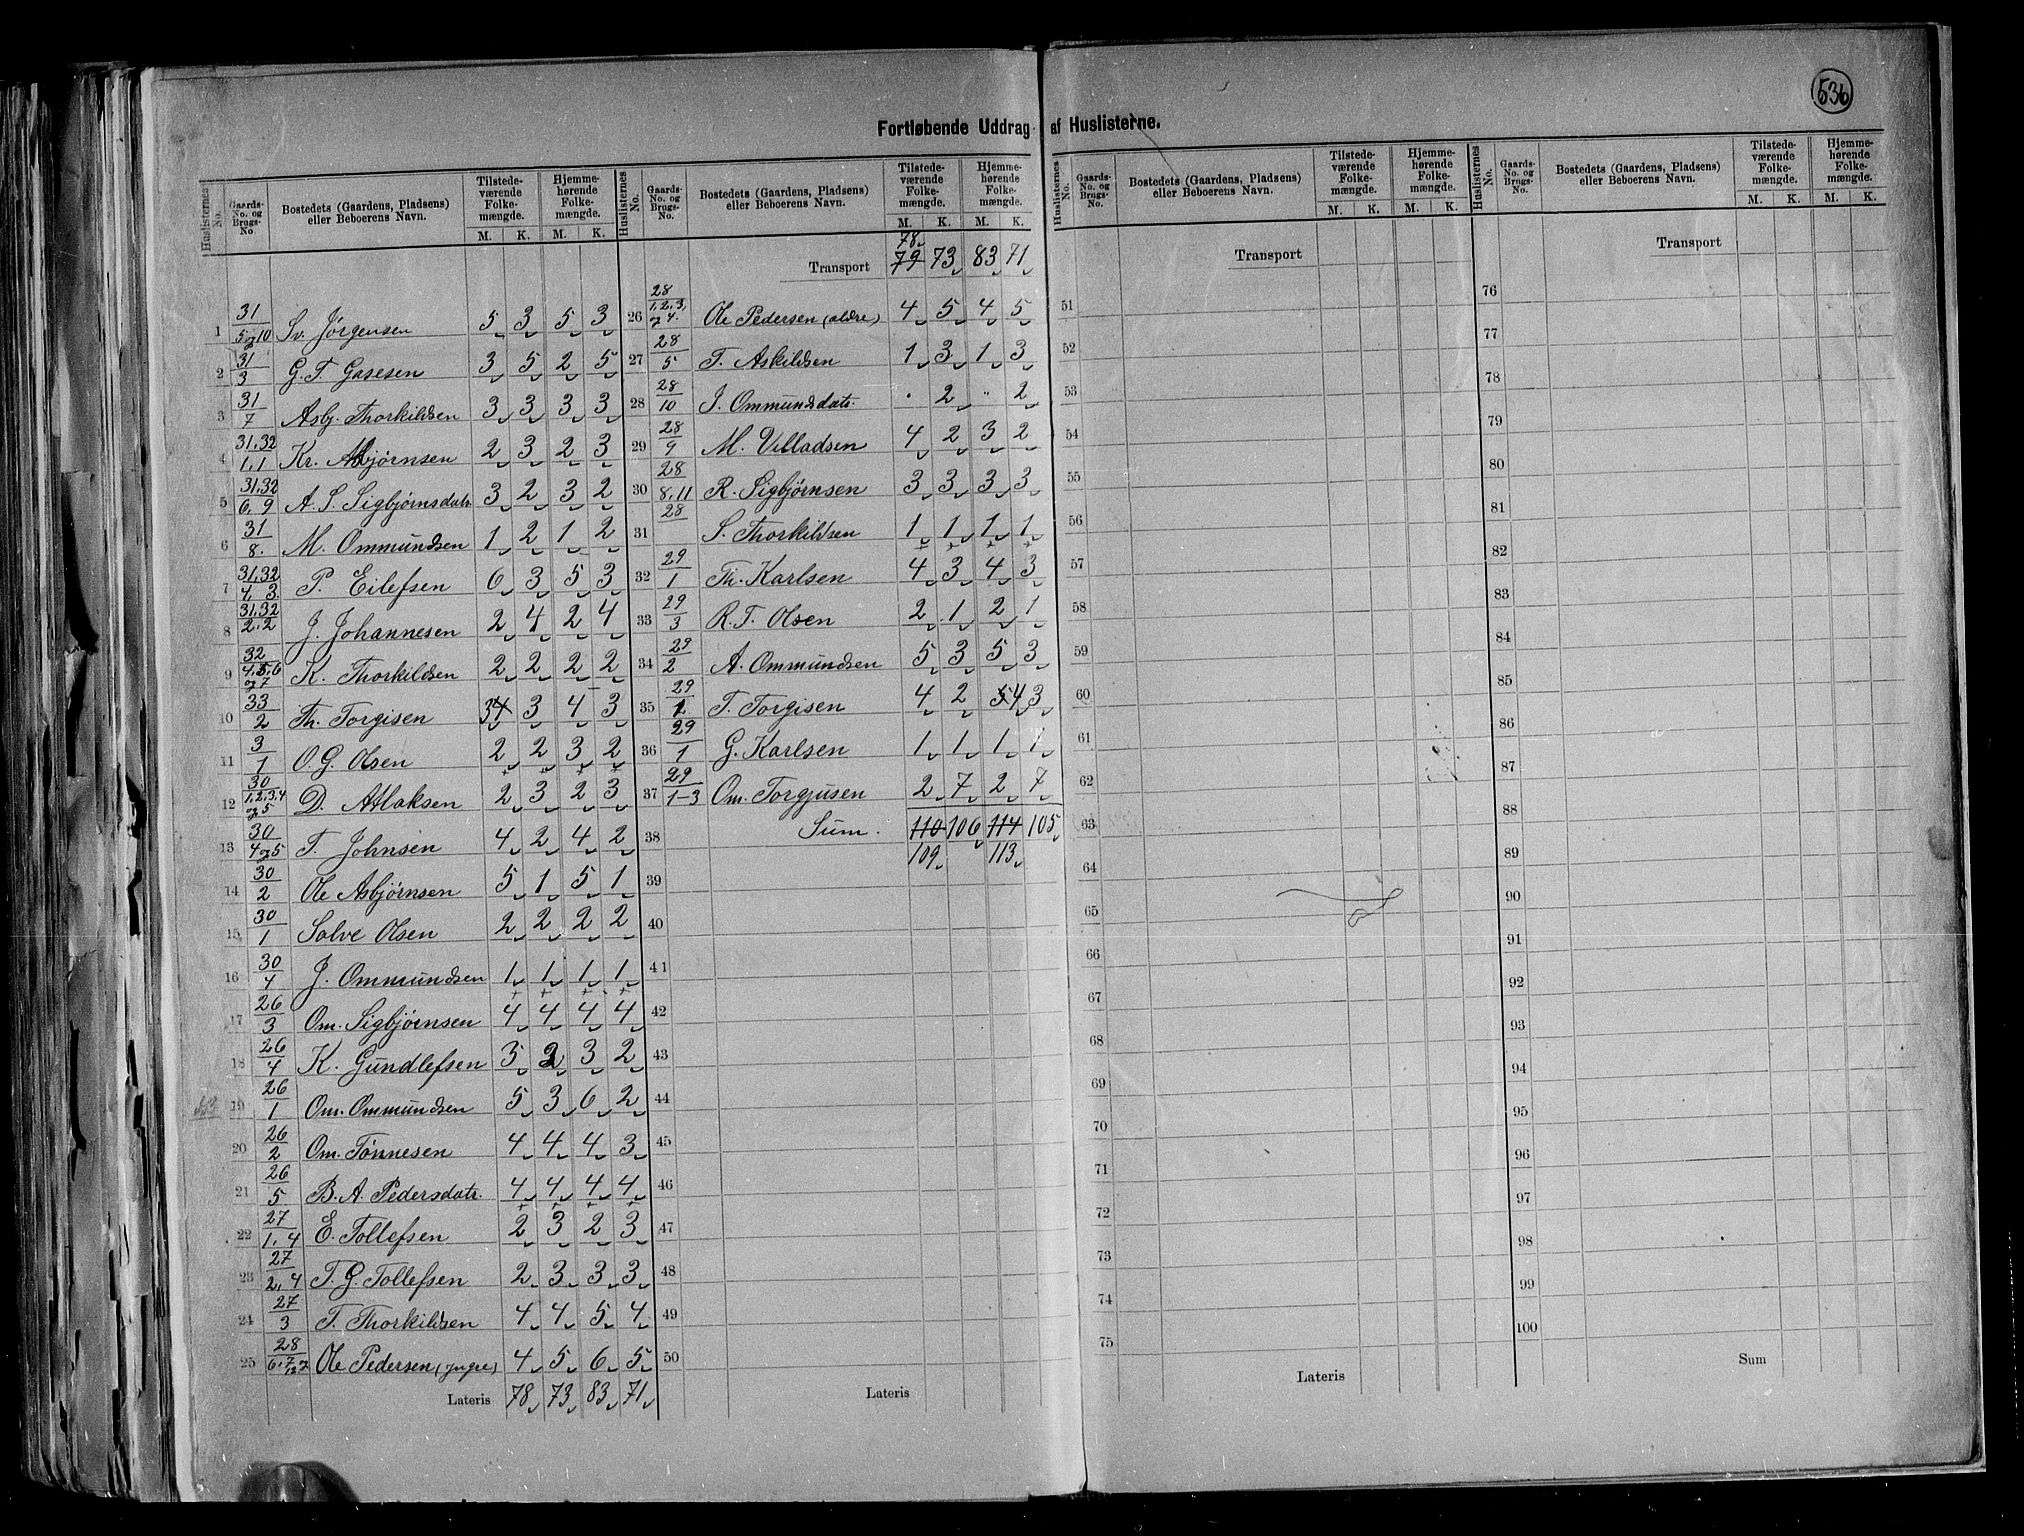 536
Fortløbende Uddrag af Huslisterne.
Huslisternes No. | Gaards-No. og Brugs-No. | Bostedets (Gaardens, Pladsens) eller Beboerens Navn. | Tilstedeværende Folkemængde. M. K. | Hjemmehørende Folkemængde. M. K.
1 31/5og10 Sv. Jörgensen 5 3 5 3
2 31/3 G. T. Gasesen 3 5 2 5
3 31/7 Asbj. Thorkildsen 3 3 3 3
4 31,32/1,1 Kr. Asbjørnsen 2 3 2 3
5 31,32/6,9 A. S. Sigbjørnsdatr. 3 2 3 2
6 31/8. M. Ommundsen 1 2 1 2
7 31,32/4,3. P. Eilefsen 6 3 5 3
8 31,32/2,2 J. Johannesen 2 4 2 4
9 32/4,5,6 og 7 K. Thorkildsen 2 2 2 2
10 33/2 Th. Torgisen 3 3 4 3
11 3/1 O. G. Olsen 2 2 3 2
12 30/1,2,3,4 og 5 D. Atlaksen 2 3 2 3
13 30/4og5 T. Johnsen 4 2 4 2
14 30/2 Ole Asbjørnsen 5 1 5 1
15 30/1 Salve Olsen 2 2 2 2
16 30/4 J. Ommundsen 1 1 1 1
17 26/3 Om. Sigbjørnsen 4 4 4 4
18 26/4 K. Gundlefsen 3 2 3 2
19 26/1 Om. Ommundsen 5 3 6 2
20 26/2 Om. Tønnesen 4 4 4 3
21 26/5 B. A. Pedersdatr. 4 4 4 4
22 27/1,4 E. Tollefsen 2 3 2 3
23 27/2,4 T. G. Tollefsen 2 3 3 3
24 27/3 T. Thorkildsen 4 4 5 4
25 28 Ole Pedersen (yngre) 4 5 6 5
Lateris 78 73 83 71
Huslisternes No. | Gaards-No. og Brugs-No. | Bostedets (Gaardens, Pladsens) eller Beboerens Navn. | Tilstedeværende Folkemængde. M. K. | Hjemmehørende Folkemængde. M. K.
78
Transport 79 73 83 71
26 28/1,2,3, og 4. Ole Pedersen (ældre) 4 5 4 5
27 28/5 T. Askildsen 1 3 1 3
28 28/10 J. Ommundsdatr. " 2 " 2
29 28/9 M. Villadsen 4 2 3 2
30 28/8,11 R. Sigbjørnsen 3 3 3 3
31 28 S. Thorkildsen 1 1 1 1
32 29/1 Th. Karlsen 4 3 4 3
33 29/3 R. T. Olsen 2 1 2 1
34 29/2 A. Ommundsen 5 3 5 3
35 29/1 T. Torgisen 4 2 5 4 3
36 29/1 G. Karlsen 1 1 1 1
37 29/1-3 Om. Torgjusen 2 7 2 7
38 Sum. 110 106 114 105
109 113
39
40
41
42
43
44
45
46
47
48
49
50
Lateris
Huslisternes No. | Gaards-No. og Brugs-No. | Bostedets (Gaardens, Pladsens) eller Beboerens Navn. | Tilstedeværende Folkemængde. M. K. | Hjemmehørende Folkemængde. M. K.
Transport
51
52
53
54
55
56
57
58
59
60
61
62
63
64
65
66
67
68
69
70
71
72
73
74
75
Lateris
Huslisternes No. | Gaards-No. og Brugs-No. | Bostedets (Gaardens, Pladsens) eller Beboerens Navn. | Tilstedeværende Folkemængde. M. K. | Hjemmehørende Folkemængde. M. K.
Transport
76
77
78
79
80
81
82
83
84
85
86
87
88
89
90
91
92
93
94
95
96
97
98
99
100
Sum